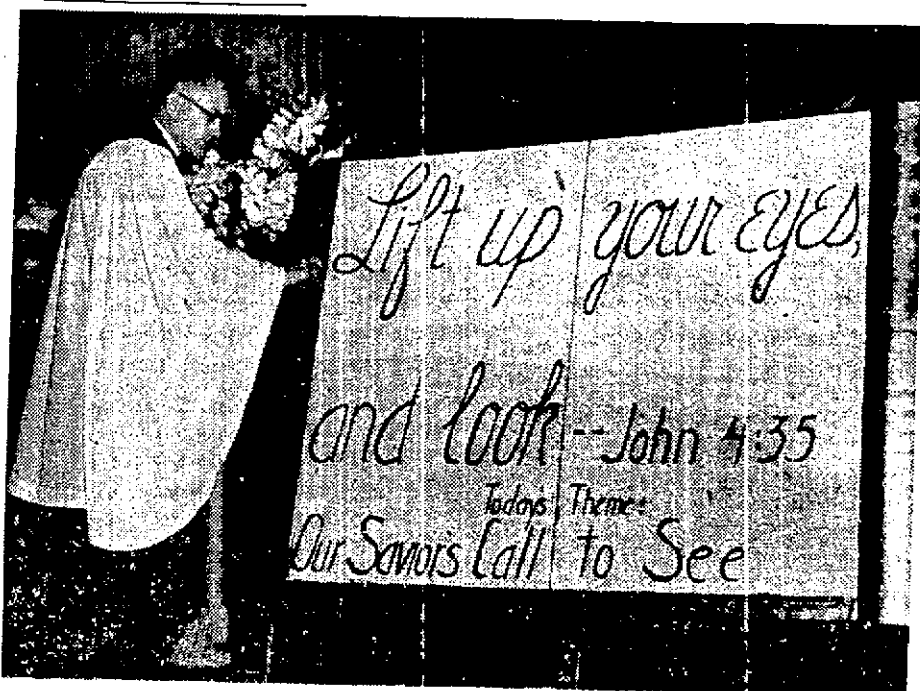 Lift up your eyes,
and look -- John 4:35
Today's Theme:
Our Savior's Call to See